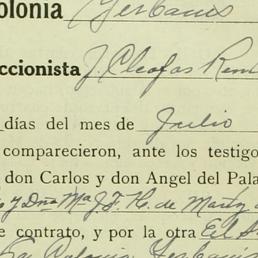 olonia Yerbanis
ccionista J. Cleofas
días del mes de Julio
comparecieron, ante los testigo
don Carlos y don Angel del Pala
y Dña Mª J. F. H. de
e contrato, y por la otra El S